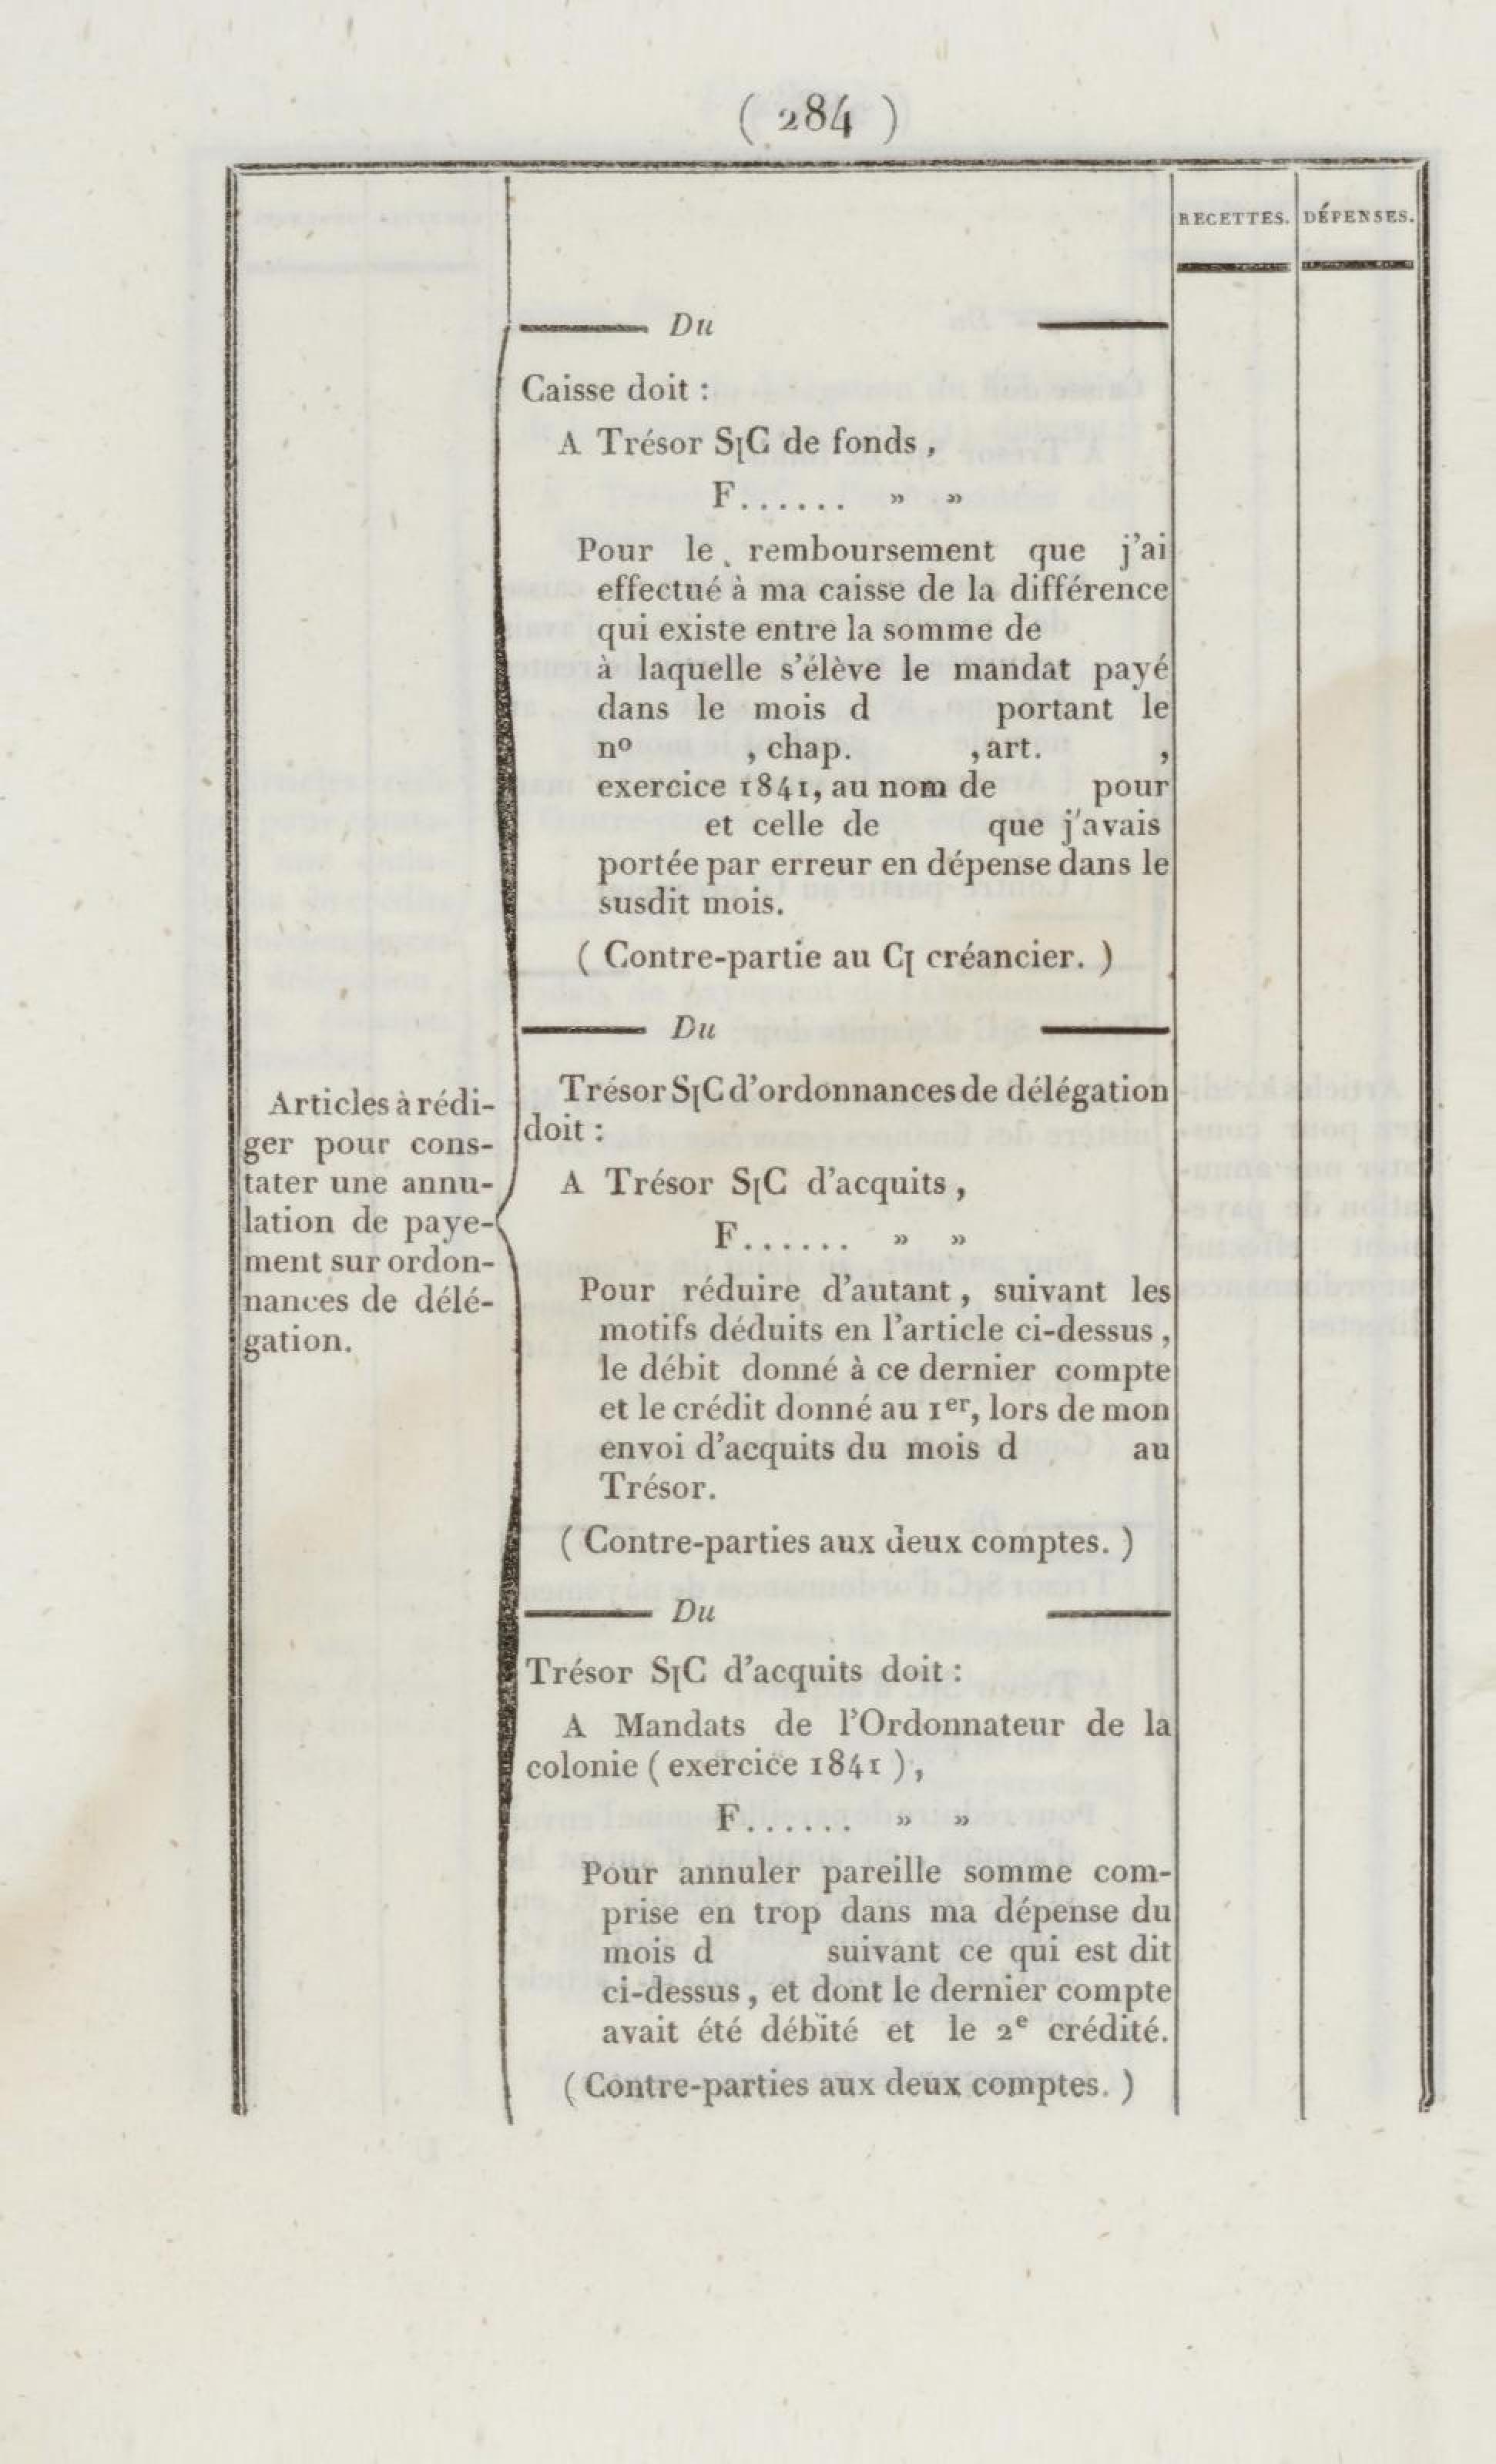 ( 284 )
RECETTES. DÉPENSES.
Du
Caisse doit :
A Trésor S[C de fonds ,
F...... » »
Pour le remboursement que j'ai
effectué à ma caisse de la différence
qui existe entre la somme de
à laquelle s'élève le mandat payé
dans le mois d portant le
nº , chap. , art. ,
exercice 1841, au nom de pour
et celle de que j'avais
portée par erreur en dépense dans le
susdit mois.
( Contre-partie au C[ créancier. )
Du
Articles à rédi-
ger pour cons-
tater une annu-
lation de paye-
ment sur ordon-
nances de délé-
gation.
Trésor S[C d'ordonnances de délégation
doit :
A Trésor S[C d'acquits ,
F...... » »
Pour réduire d'autant , suivant les
motifs déduits en l'article ci-dessus ,
le débit donné à ce dernier compte
et le crédit donné au 1er, lors de mon
envoi d'acquits du mois d au
Trésor.
( Contre-parties aux deux comptes. )
Du
Trésor S[C d'acquits doit :
A Mandats de l'Ordonnateur de la
colonie ( exercice 1841 ) ,
F...... » »
Pour annuler pareille somme com-
prise en trop dans ma dépense du
mois d suivant ce qui est dit
ci-dessus , et dont le dernier compte
avait été débité et le 2e crédité.
( Contre-parties aux deux comptes. )